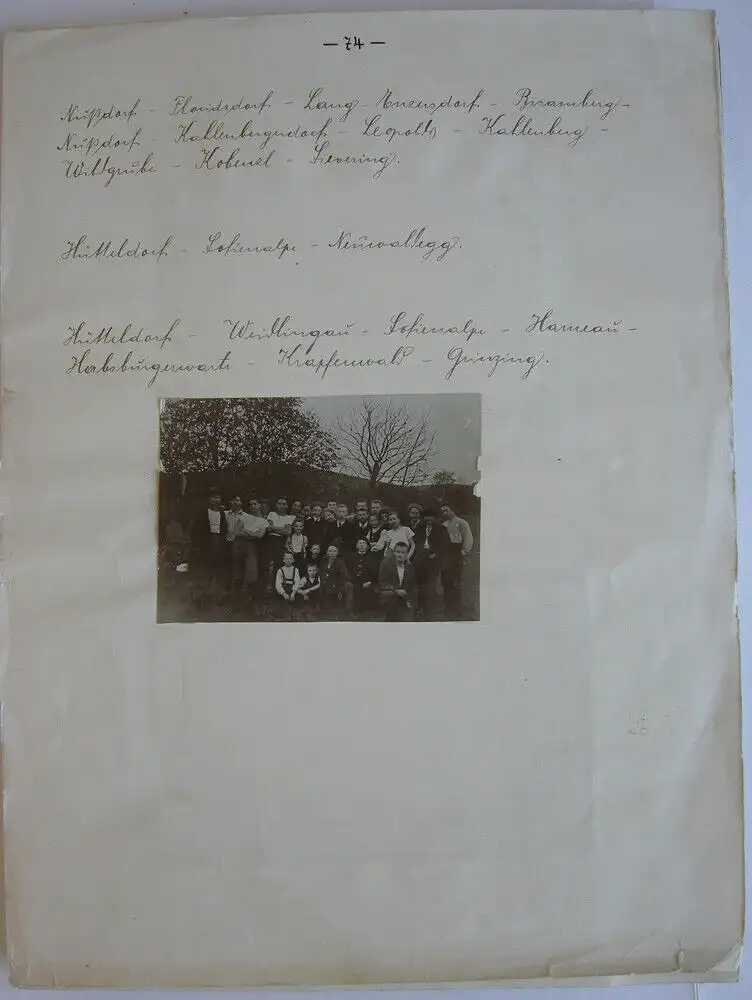 — 74 —
Nußdorf - Floridsdorf - Lang-Enzersdorf - Bisamberg -
Nußdorf - Kahlenbergerdorf - Leopolds - Kahlenberg -
Wildgrube - Kobenzl - Sievering.
Hütteldorf - Sofienalpe - Neuwaldegg.
Hütteldorf - Weidlingau - Sofienalpe - Hameau -
Habsburgerwarte - Krapfenwald - Grinzing.